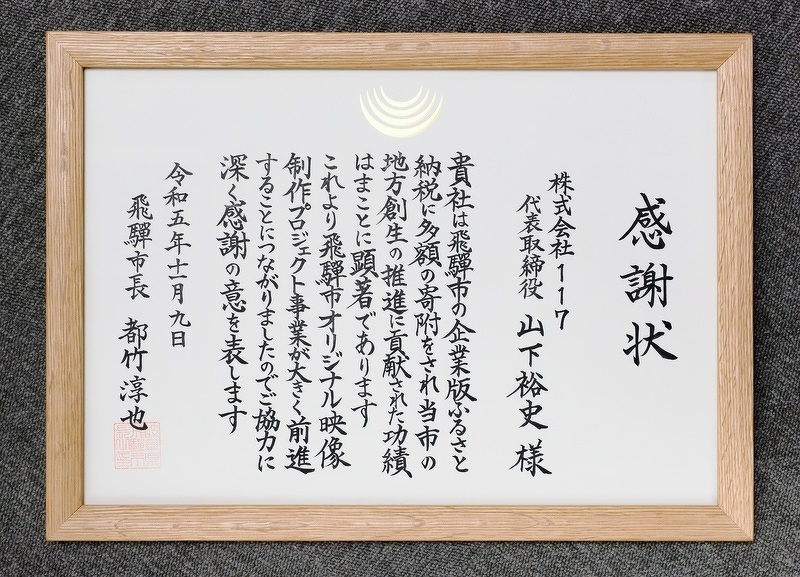 感謝状
株式会社117
代表取締役 山下裕史 様
貴社は飛騨市の企業版ふるさと
納税に多額の寄附をされ当市の
地方創生の推進に貢献された功績
はまことに顕著であります
これより飛騨市オリジナル映像
制作プロジェクト事業が大きく前進
することにつながりましたのでご協力に
深く感謝の意を表します
令和五年十一月九日
飛騨市長 都竹淳也